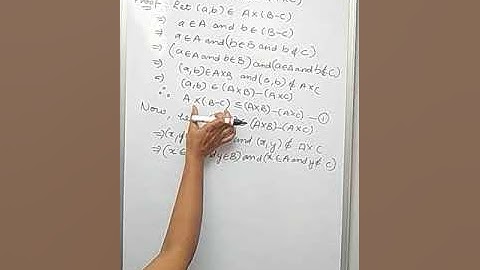 Proof:- Let (a,b) ∈ A×(B-C)
⇒ a∈A and b∈(B-C)
⇒ a∈A and (b∈B and b∉C)
⇒ (a∈A and b∈B) and (a∈A and b∉C)
⇒ (a,b)∈A×B and (a,b)∉A×C
⇒ (a,b)∈(A×B)-(A×C)
∴ A×(B-C)⊆(A×B)-(A×C) -①
Now, (A×B)-(A×C)
⇒(x,y and (x,y)∉A×C
⇒(x∈ y∈B) and (x∈A and y∉C)